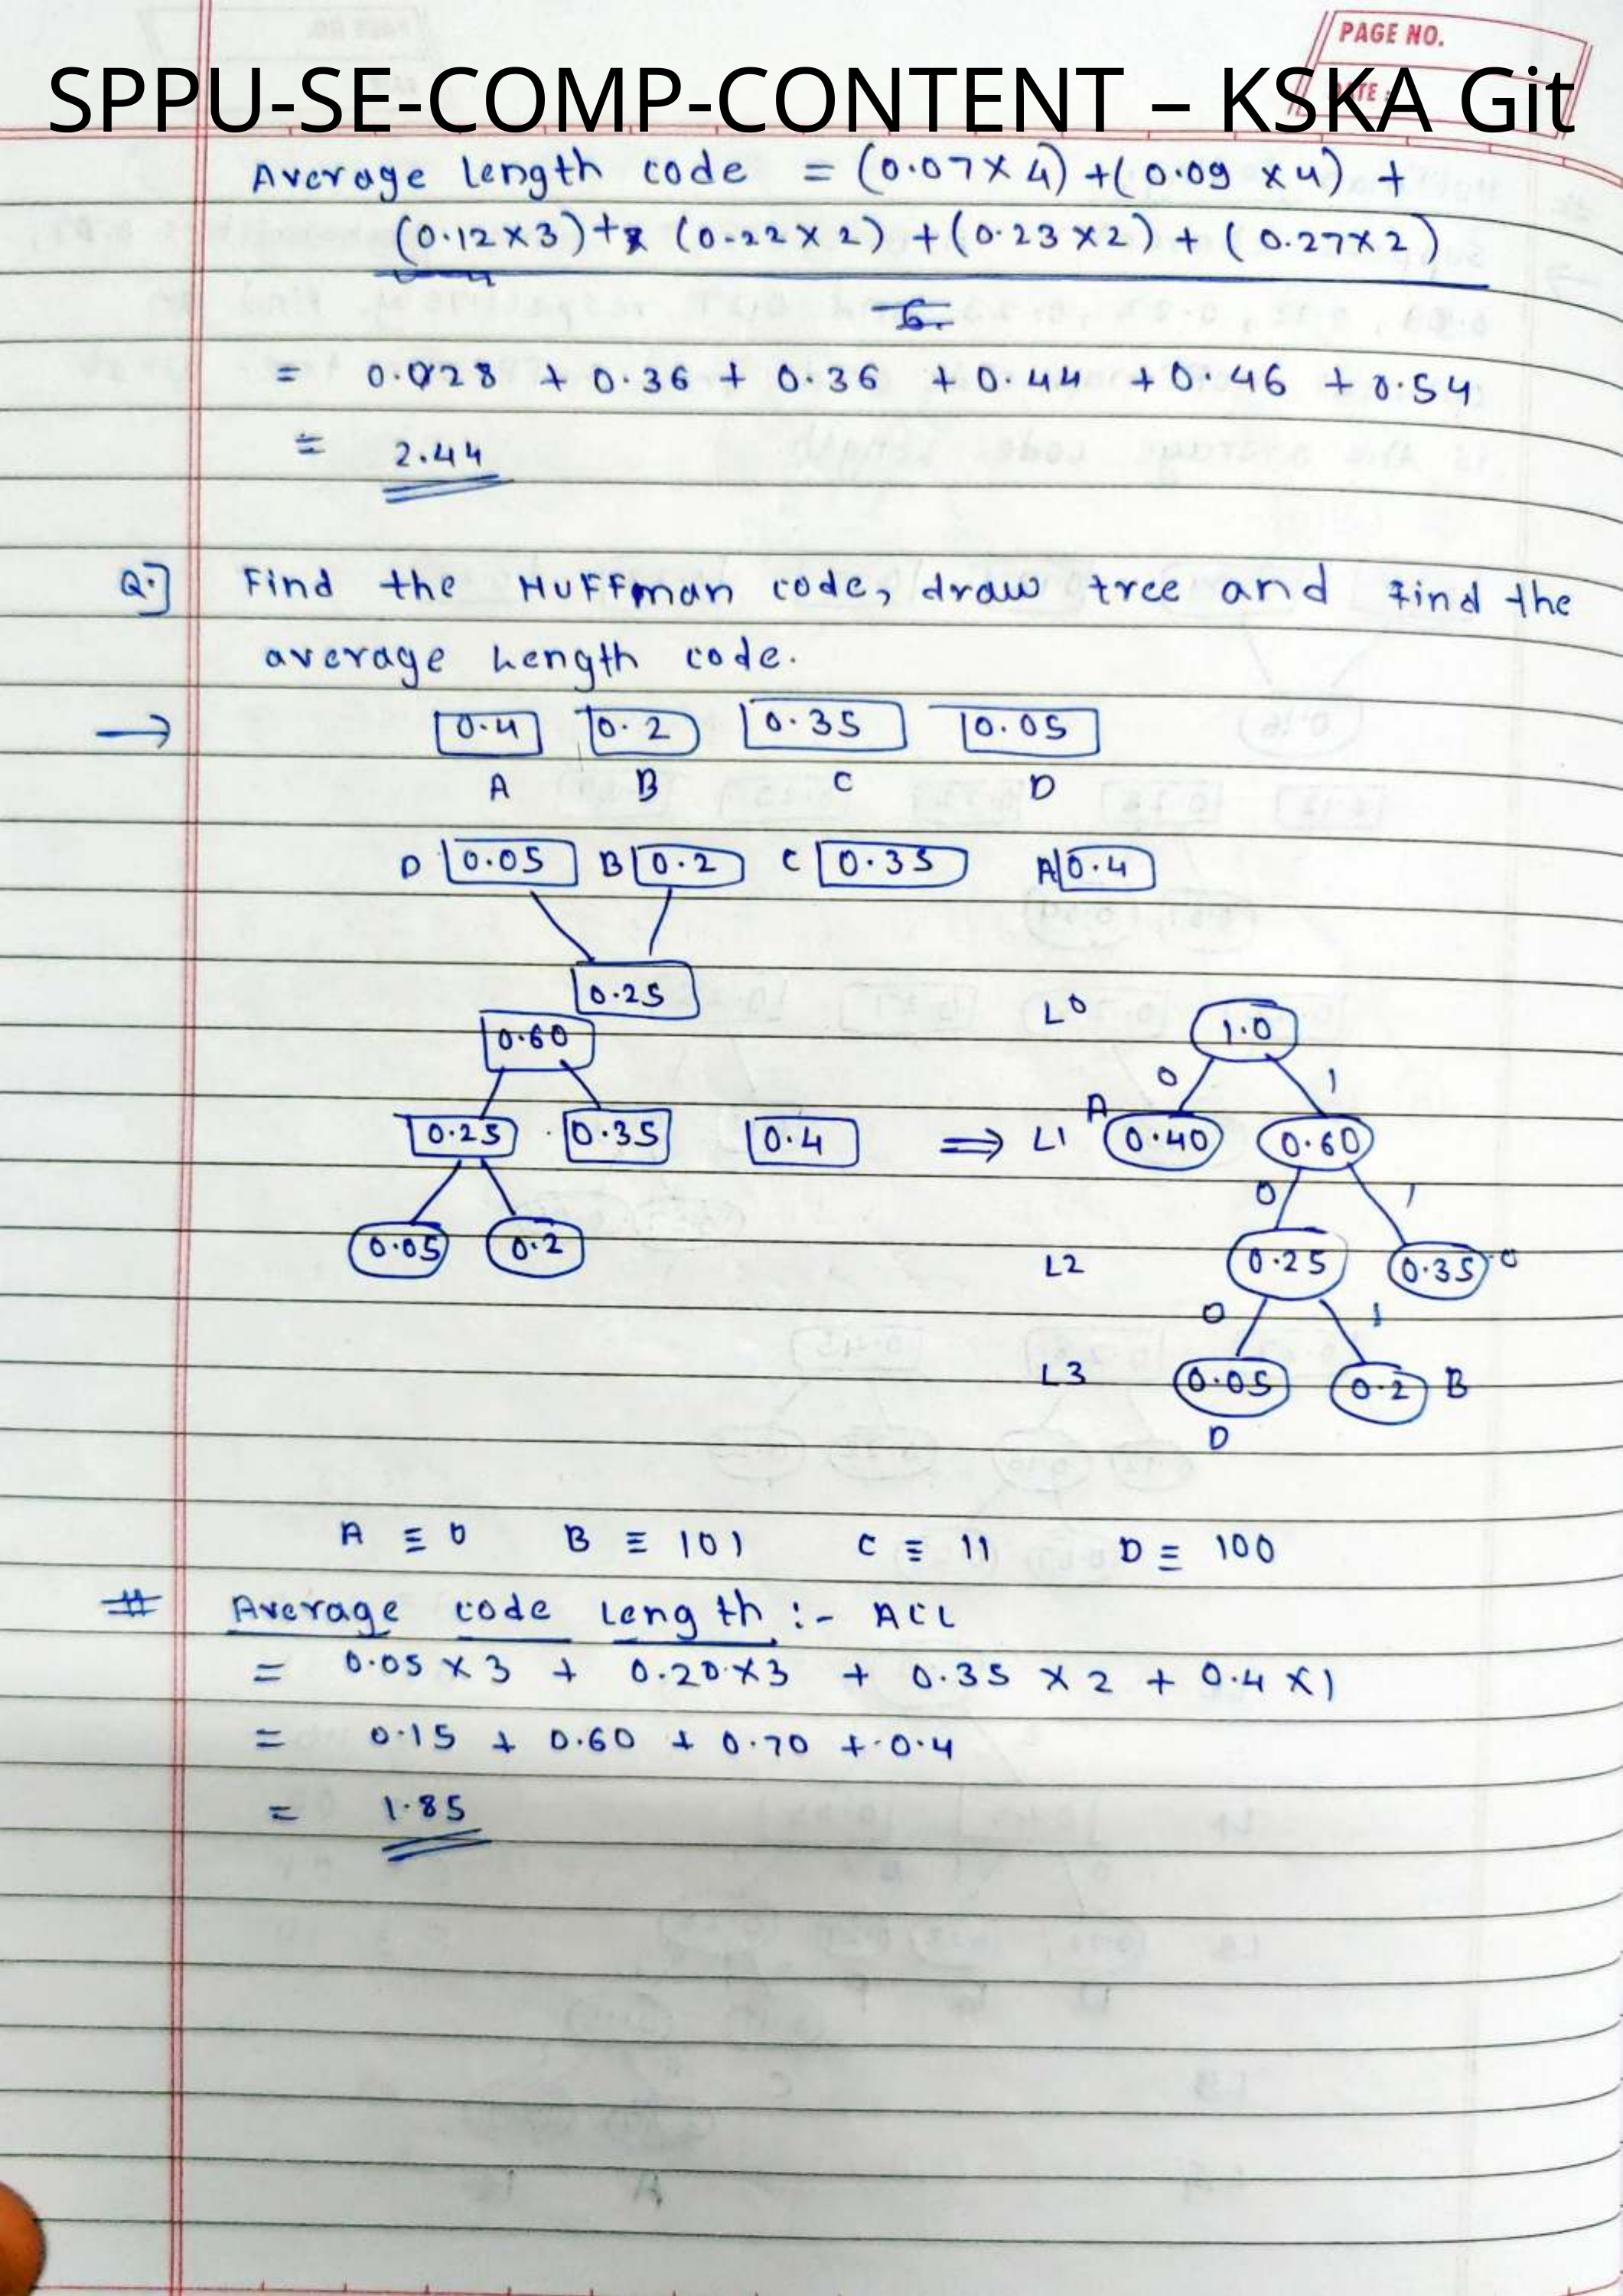 PAGE NO.
SPPU-SE-COMP-CONTENT – KSKA Git
Average length code = (0.07 x 4) + (0.09 x 4) +
(0.12 x 3) + (0.22 x 2) + (0.23 x 2) + (0.27 x 2)
6.
= 0.028 + 0.36 + 0.36 + 0.44 + 0.46 + 0.54
= 2.44
Q.] Find the Huffman code, draw tree and find the
average length code.
→ 0.4 0.2 0.35 0.05
A B C D
D 0.05 B 0.2 C 0.35 A 0.4
0.25
0.60
0.25 0.35 0.4
0.05 0.2
⇒
L0 1.0
0 1
L1 A 0.40 0.60
0 1
L2 0.25 0.35
0 1
L3 0.05 0.2 B
D
A ≡ 0 B ≡ 101 C ≡ 11 D ≡ 100
# Average code length :- ACL
= 0.05 x 3 + 0.20 x 3 + 0.35 x 2 + 0.4 x 1
= 0.15 + 0.60 + 0.70 + 0.4
= 1.85